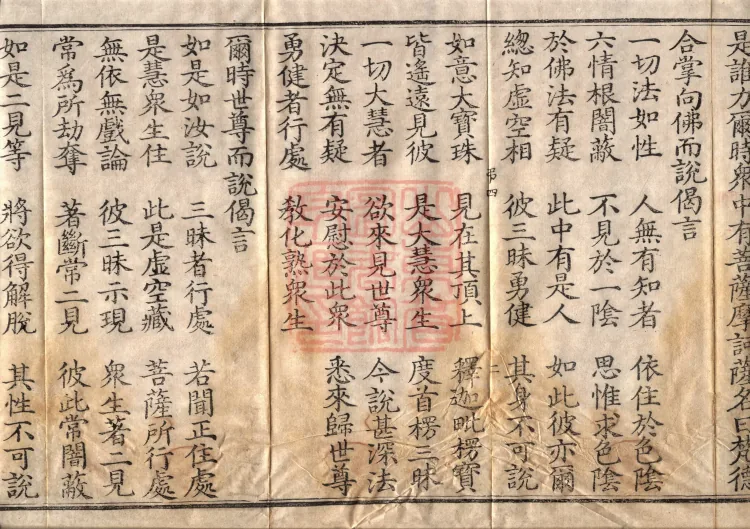 是諸力爾時衆中有菩薩摩訶薩名曰梵德
合掌向佛而說偈言
一切法如性 人無有知者 依住於色陰
六情根闇蔽 不見於一陰 思惟求色陰
於佛法有疑 此中有是人 如此彼亦爾
總知虛空相 彼三昧勇健 其身不可說
如意大寶珠 見在其頂上 釋迦毗楞寶
皆遙遠見彼 是大慧衆生 度首楞三昧
一切大慧者 欲來見世尊 今說甚深法
決定無有疑 安慰於此衆 悉來歸世尊
勇健者行處 教化熟衆生
爾時世尊而說偈言
如是如汝說 三昧者行處 若聞正住處
是慧衆生住 此是虛空藏 菩薩所行處
無依無戲論 彼三昧示現 衆生著二見
常爲所劫奪 著斷常二見 彼此常闇蔽
如是二見等 將欲得解脫 其性不可說